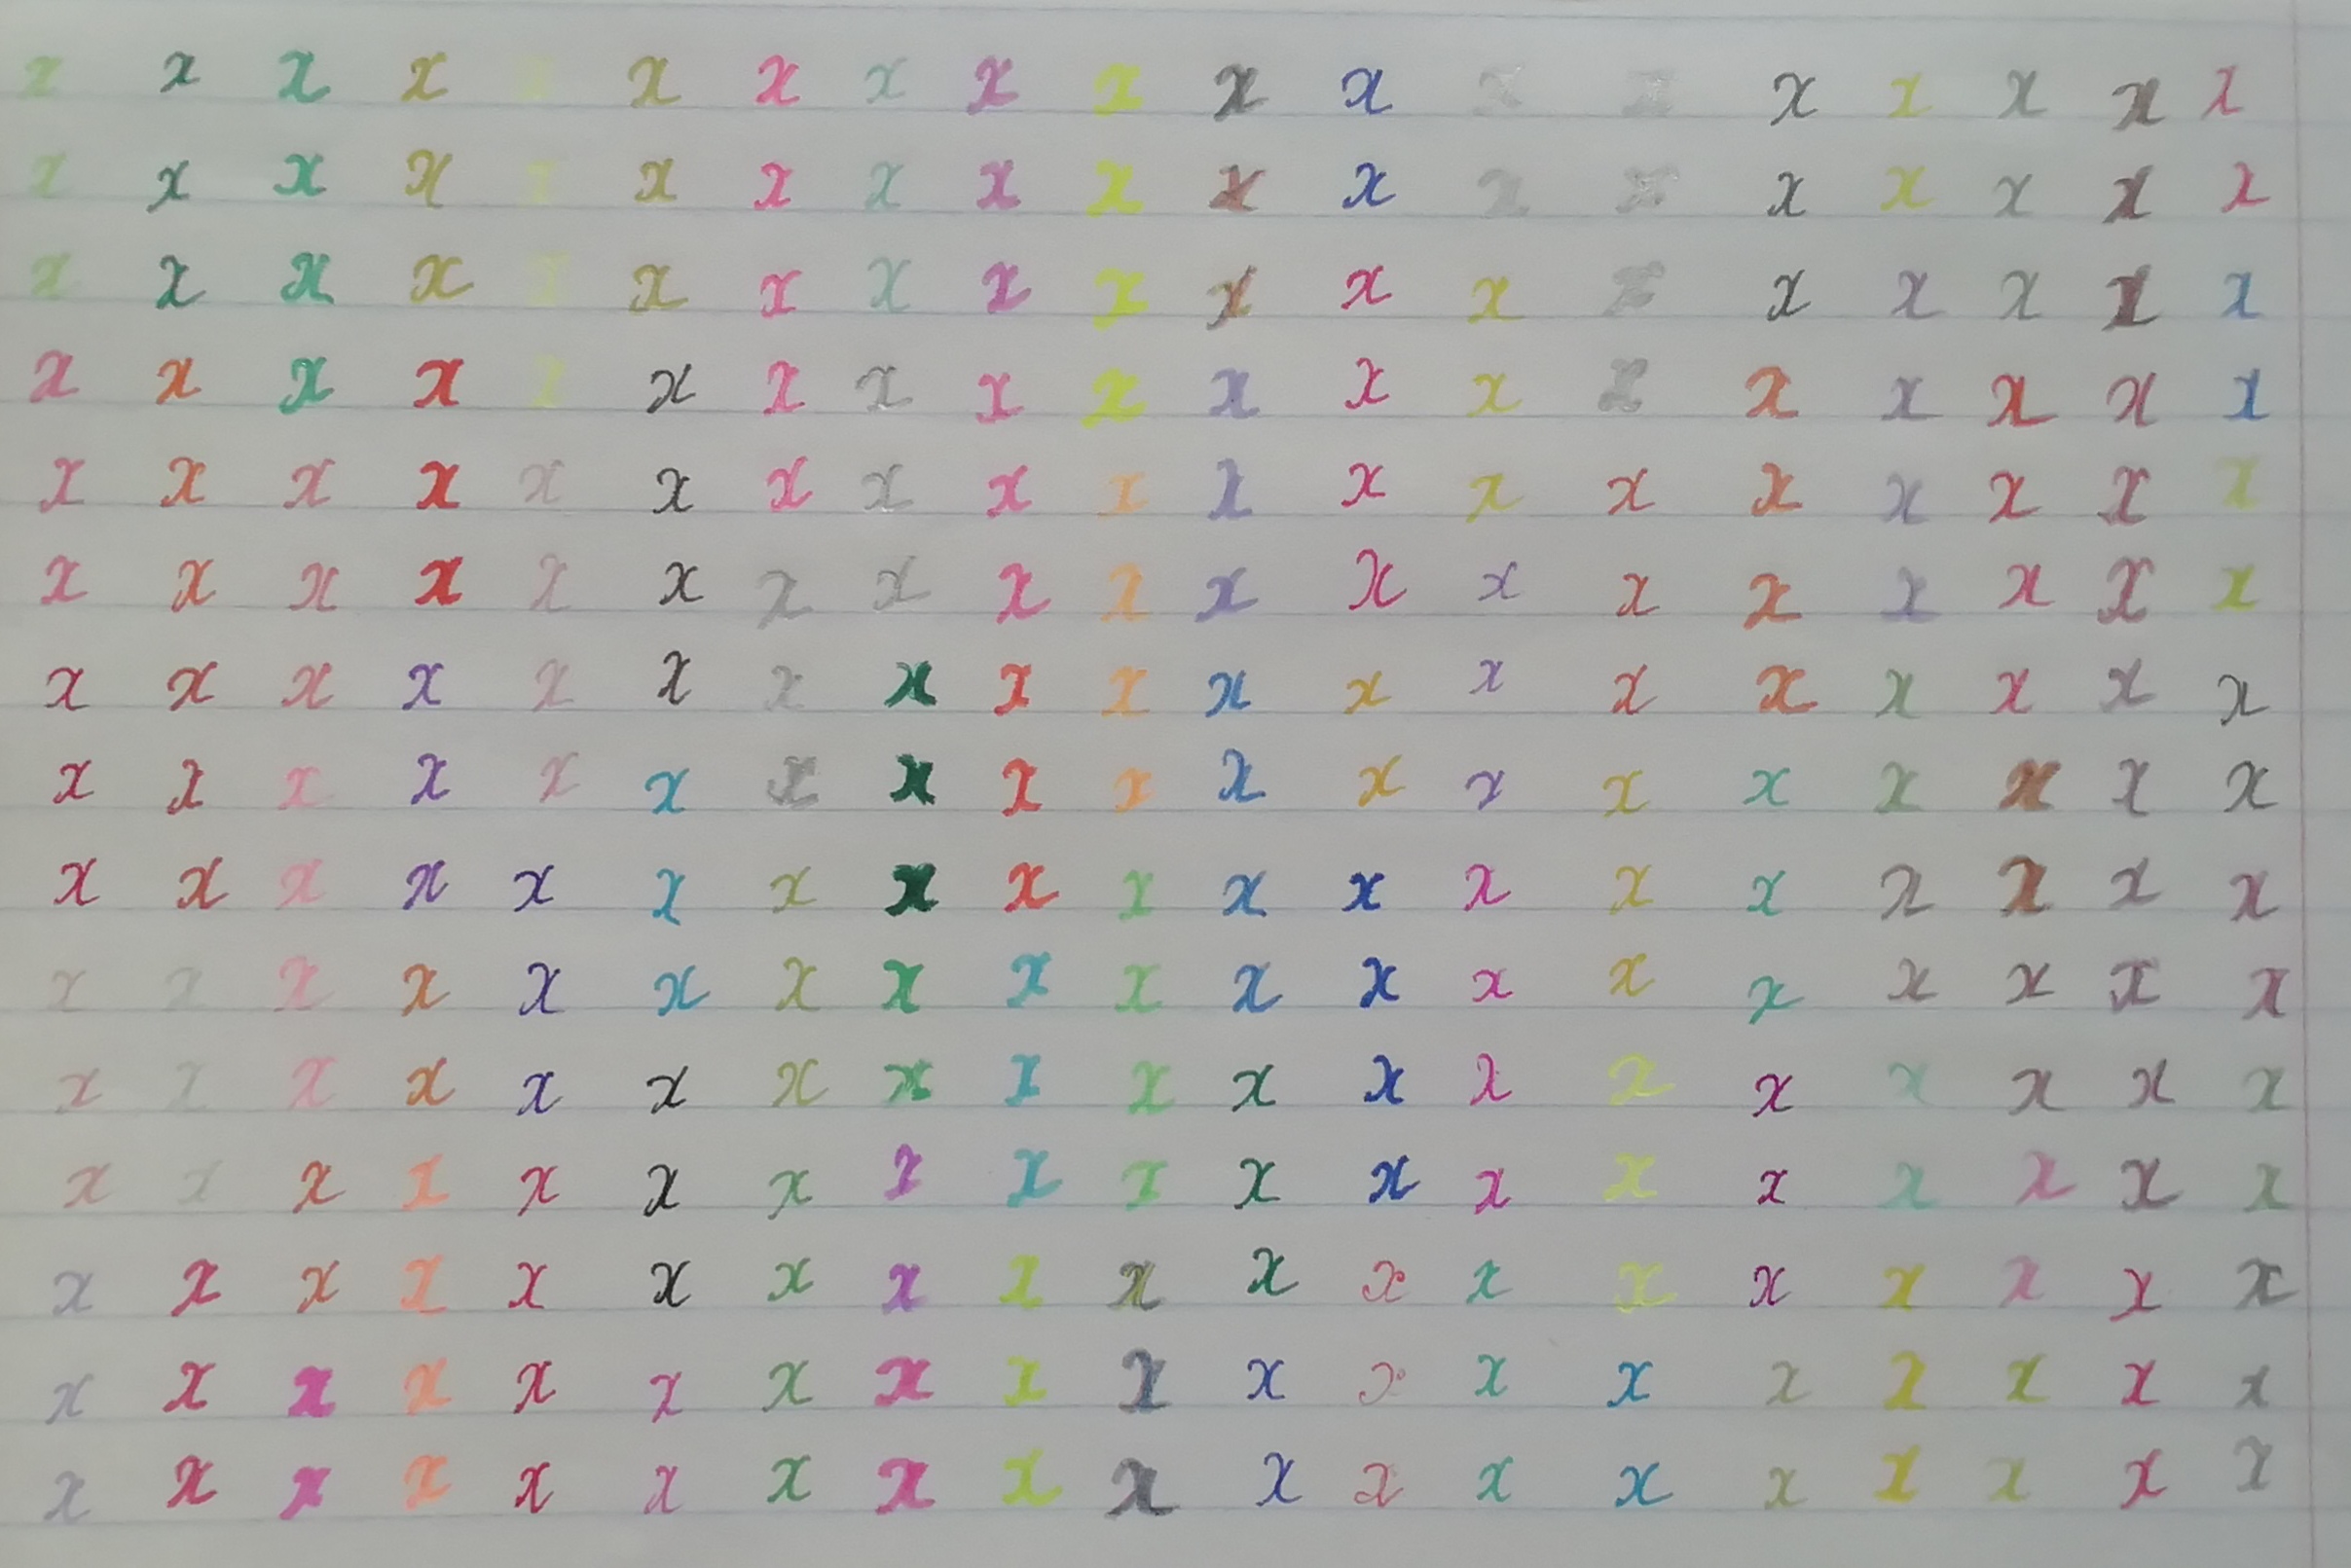 x x x x x x x x x x x x x x x x x x x
x x x x x x x x x x x x x x x x x x x
x x x x x x x x x x x x x x x x x x x
x x x x x x x x x x x x x x x x x x x
x x x x x x x x x x x x x x x x x x x
x x x x x x x x x x x x x x x x x x x
x x x x x x x x x x x x x x x x x x x
x x x x x x x x x x x x x x x x x x x
x x x x x x x x x x x x x x x x x x x
x x x x x x x x x x x x x x x x x x x
x x x x x x x x x x x x x x x x x x x
x x x x x x x x x x x x x x x x x x x
x x x x x x x x x x x x x x x x x x x
x x x x x x x x x x x x x x x x x x x
x x x x x x x x x x x x x x x x x x x